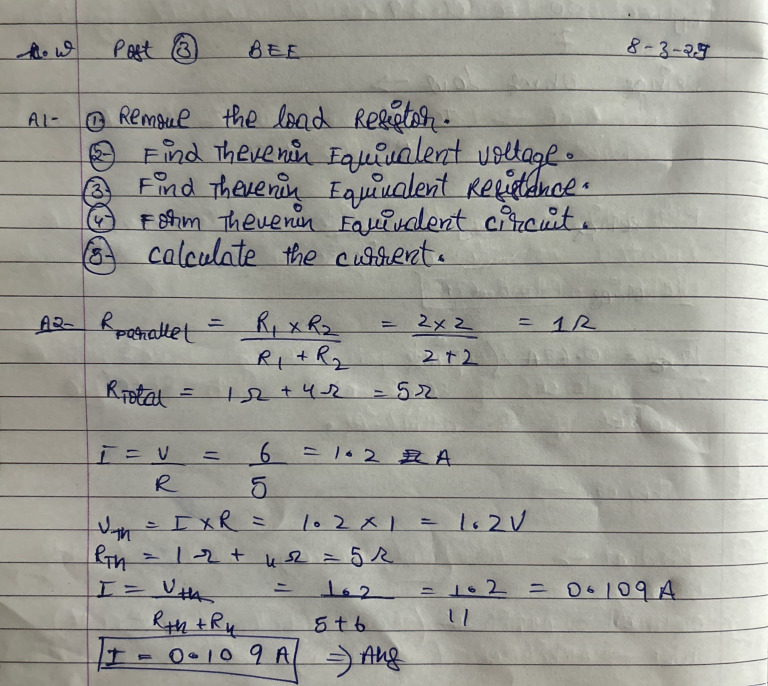 H.W Part ③ BEE 8-3-25
A1- ① Remove the load Resistor.
② Find Thevenin Equivalent voltage.
③ Find Thevenin Equivalent Resistance.
④ Form Thevenin Equivalent circuit.
⑤ calculate the current.
A2- R parallel = R₁ × R₂ / R₁ + R₂ = 2×2 / 2+2 = 1Ω
R Total = 1Ω + 4Ω = 5Ω
I = V / R = 6 / 5 = 1.2 A
V_Th = I × R = 1.2 × 1 = 1.2V
R_Th = 1Ω + 4Ω = 5Ω
I = V_Th / R_Th + R₄ = 1.2 / 5+6 = 1.2 / 11 = 0.109 A
I = 0.109 A ⇒ Ans